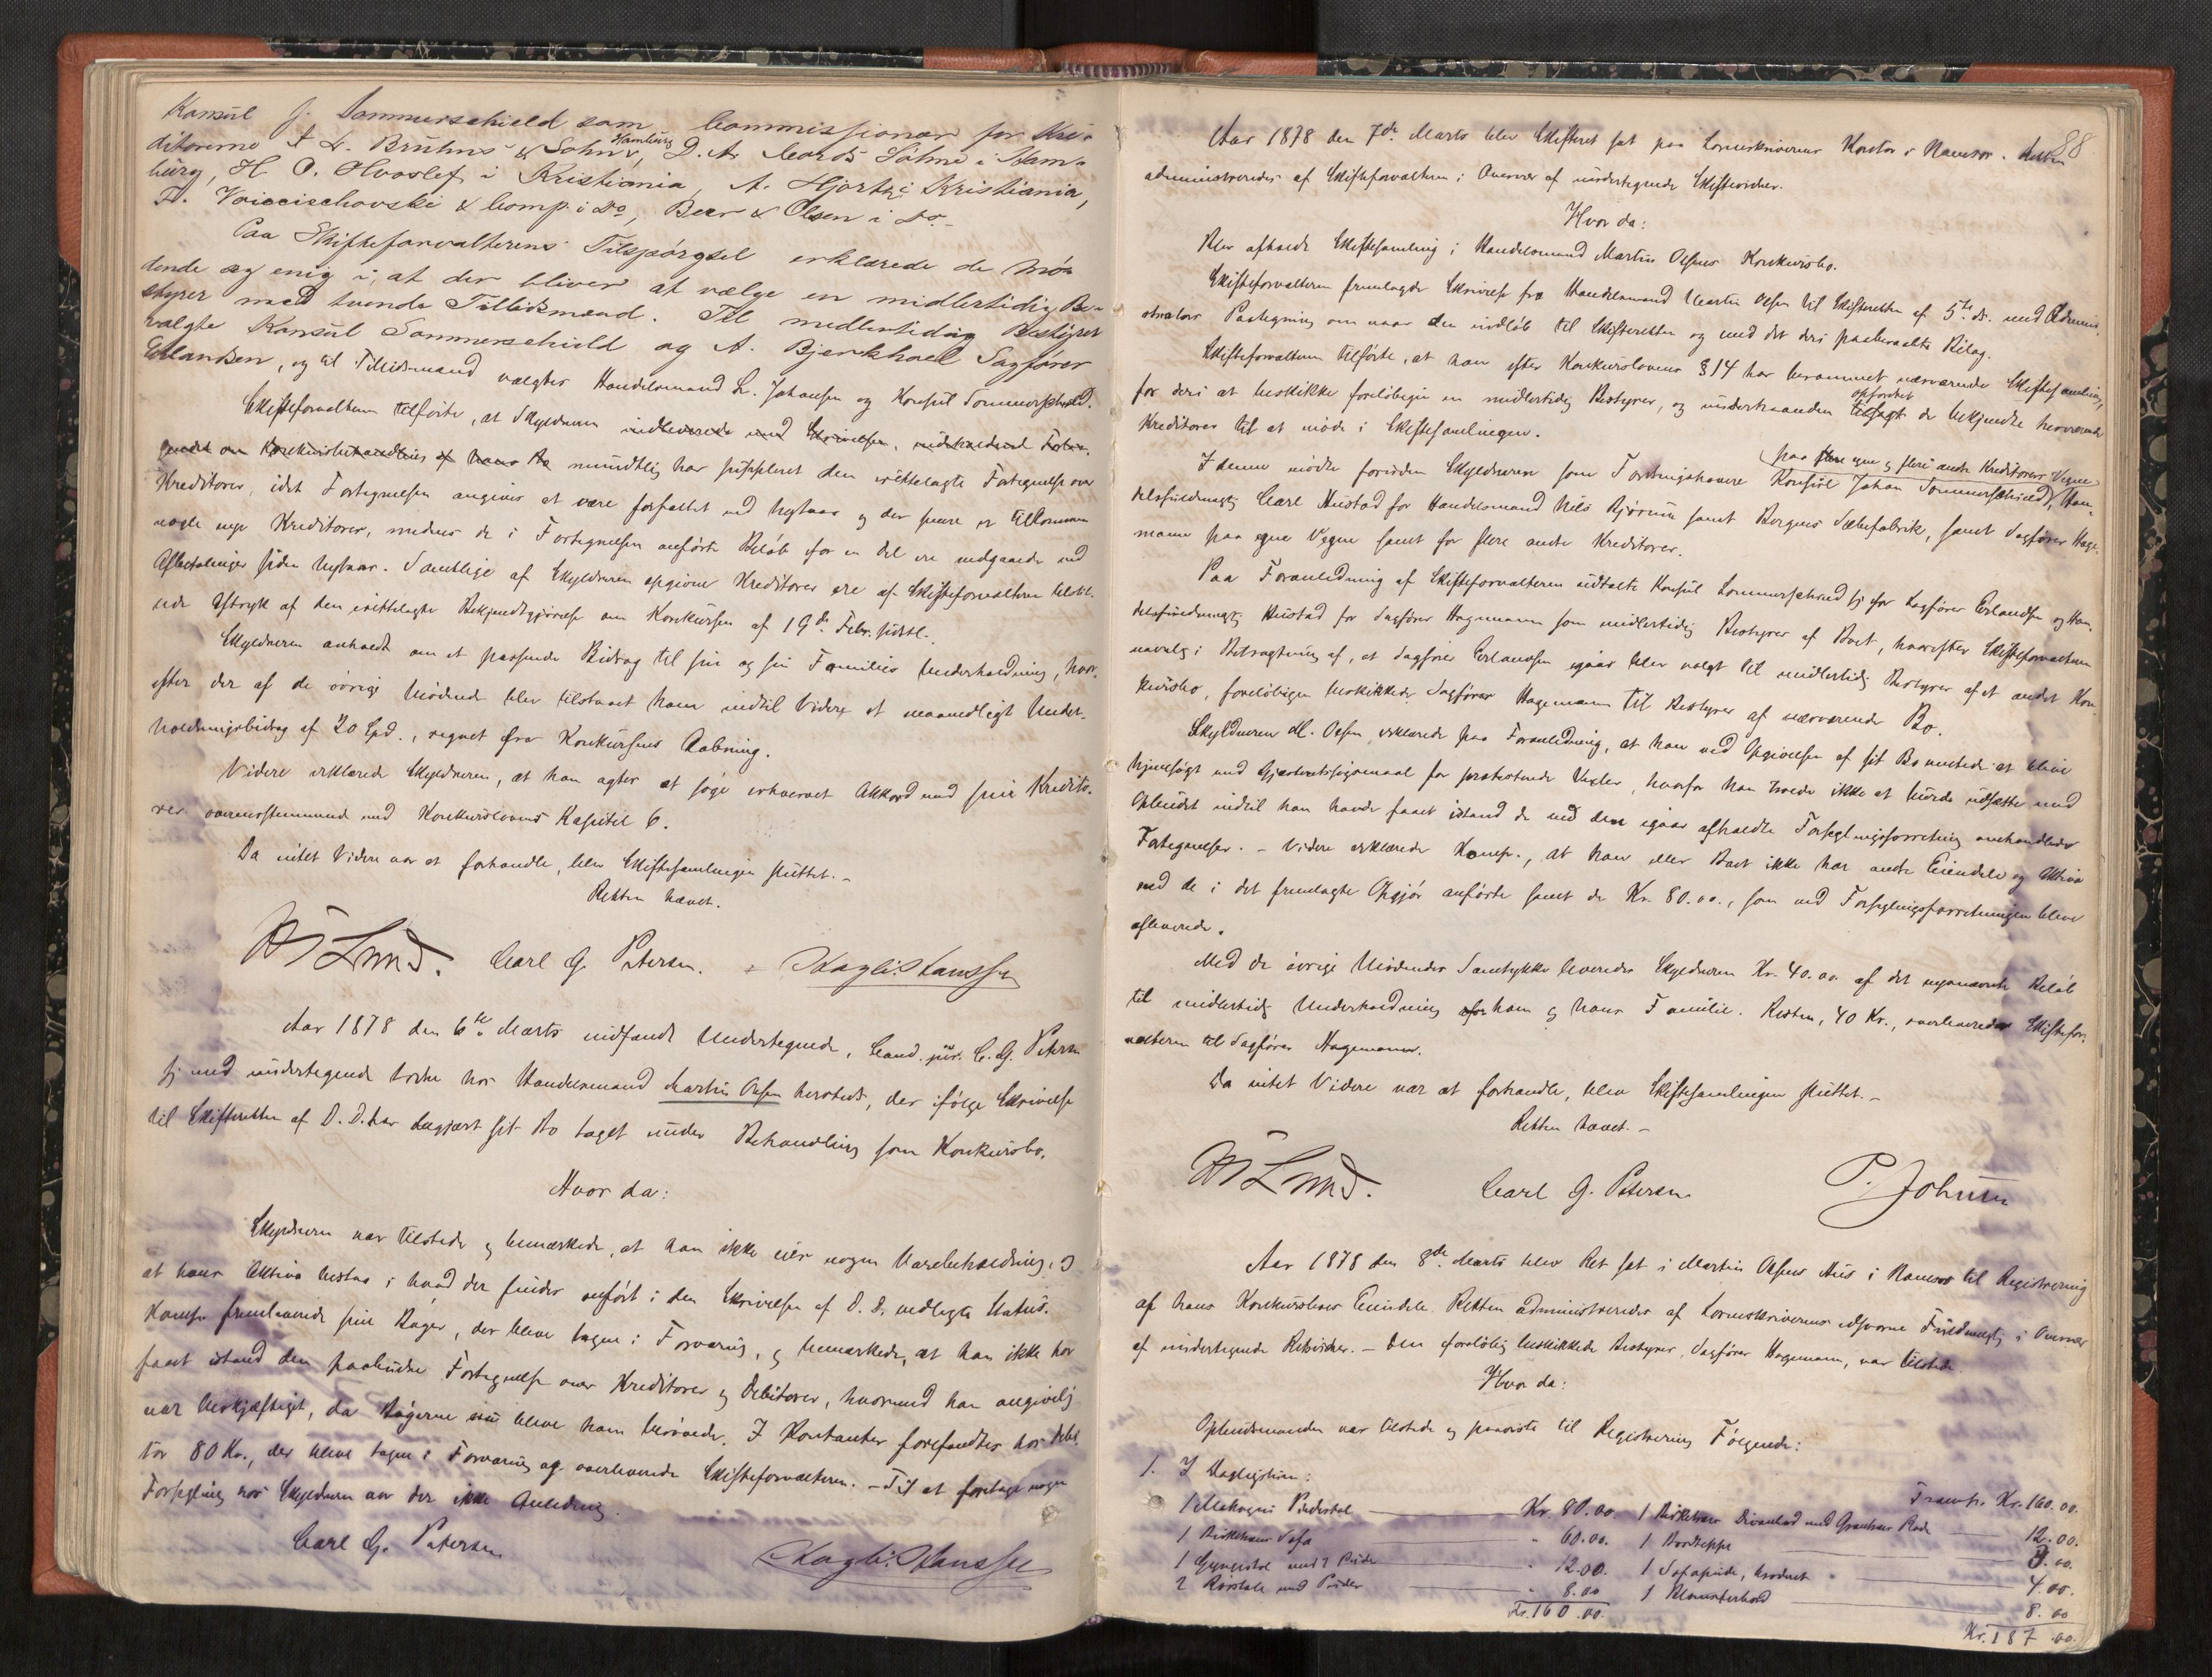 Konsul J. Sommerschield som Commissionær for Kre-
ditorerne A. L. Bruhns & Sohn i Hamburg, D. A. Cords Söhne i Ham-
burg, H. O. Hvoslef i Kristiania, A. Hjorth i Kristiania,
F. Voiccischovski & Comp. i Do, Beer & Olsen i Do.-
Paa Skifteforvalterens Tilspörgsel erklærede de mö-
dende sig enig i, at der bliver at vælge en midlertidig Be-
styrer med tvende Tillidsmænd. Til midlertidig Bestyrer
valgte Konsul Sommerschield og A. Bjerkhoel Sagförer
Erlandsen, og til Tillidsmænd valgtes Handelsmand L. Johansen og Konsul Sommerschield.
Skifteforvalteren tilförte, at Skyldneren indleverede med Skrivelsen, indeholdende
om Konkursbehandling af hans Bo mundtlig har suppleret den irettelagte Fortegnelse over
Kreditorer, idet Fortegnelsen angives at være forfattet ved Nytaar og der senere er tilkommen
nogle nye Kreditorer, medens de i Fortegnelsen anförte Belöb for en Del ere nedgaaede ved
Afbetalinger siden Nytaar. Samtlige af Skyldneren opgivne Kreditorer ere af Skifteforvalteren tilstil-
lede Aftryk af den irettelagte Bekjendtgjörelse om Konkursen af 19de Febr. sidstl.
Skyldneren anholdt om et passende Bidrag til sin og sin Families Underholdning, hvor-
efter der af de övrige Mödende blev tilstaaet ham indtil Videre et maanedligt Under-
holdningsbidrag af 20 Spd., regnet fra Konkursens Aabning.
Videre erklærede Skyldneren, at han agter at söge erhvervet Akkord med sine Kredito-
rer overensstemmende med Konkurslovens Kapitel 6.
Da intet Videre var at forhandle, blev Skiftesamlingen sluttet.-
Retten hævet.
Lund. Carl G. Petersen. Hanssen
Aar 1878 den 6te Marts indfandt Undertegnede, Cand. jur. C. G. Petersen
sig med undertegnede Vidne hos Handelsmand Martin Olsen hersteds, der ifölge Skrivelse
til Skifteretten af D. D. har begjært sit Bo taget under Behandling som Konkursbo.
Hvor da:
Skyldneren var tilstede og bemærkede, at han ikke eier nogen Varebeholdning, og
at hans Aktiva bestaa i hvad der findes anfört i den Skrivelsen af D. D. vedlagte Status.
Komp. fremleverede sine Böger, der bleve tagne i Forvaring, og bemærkede, at han ikke har
faaet istand den paabudne Fortegnelse over Kreditorer og Debitorer, hvormed han angivelig
var beskjæftiget, da Bögerne nu bleve ham berövede. I Kontanter forefandtes hos Debi-
tor 80 Kr., der bleve tagne i Forvaring og overleverede Skifteforvalteren. - Til at foretage nogen
Forsegling hos Skyldneren var der ikke Anledning.
Carl G. Petersen Hanssen
88
Aar 1878 den 7de Marts blev Skifteret sat paa Sorenskriverens Kontor i Namsos. Retten
administreredes af Skifteforvalteren i Overvær af undertegnede Skiftevidner.
Hvor da:
Blev afholdt Skiftesamling i Handelsmand Martin Olsens Konkursbo.
Skifteforvalteren fremlagde Skrivelse fra Handelsmand Martin Olsen til Skifteretten af 5te ds. med Admini-
strators Paategning om naar den indlöb til Skifteretten og med det deri paaberaabte Bilag.
Skifteforvalteren tilförte, at han efter Konkurslovens § 14 har berammet nærværende Skiftesamling,
for deri at beskikke foreløbigen en midlertidig Bestyrer, og underhaanden tilsagt opfordret de bekjendte herværende
Kreditorer til at möde i Skiftesamlingen.
I denne mödte foruden Skyldneren som Fordringshavere Konsul Johan Sommerschield, paa egne og flere andre Kreditorers Vegne, Han-
delsfuldmægtig Carl Hustad for Handelsmand Nils Björum samt Bergens Sæbefabrik, samt Sagförer Hage-
mann paa egne Vegne samt for flere andre Kreditorer.
Paa Foranledning af Skifteforvalteren udtalte Konsul Sommerschield sig for Sagförer Erlandsen og Han-
delsfuldmægtig Hustad for Sagförer Hagemann som midlertidig Bestyrer af Boet, hvorefter Skifteforvalteren
navnlig i Betragtning af, at Sagförer Erlandsen igaar blev valgt til midlertidig Bestyrer af et andet Kon-
kursbo, forelöbigen beskikkede Sagförer Hagemann til Bestyrer af nærværende Bo.
Skyldneren M. Olsen erklærede paa Foranledning, at han ved Opgivelsen af sit Bo ventede at blive
hjemsögt med Gjæsteretssögsmaal for protesterede Vexler, hvorfor han troede ikke at burde udsætte med
Opbudet indtil han havde faaet istand de ved den igaar afholdte Forseglingsforretning omhandlede
Fortegnelser. - Videre erklærede Komp., at han eller Boet ikke har andre Eiendele og Aktiva
end de i det fremlagte Opgjör anförte samt de Kr. 80.00., som ved Forseglingsforretningen bleve
afleverede.
Med de övrige Mödendes Samtykke leveredes Skyldneren Kr. 40.00 af det nysnævnte Belöb
til midlertidig Underholdning for ham og hans Familie. Resten, 40 Kr., overleveredes Skiftefor-
valteren til Sagförer Hagemann.
Da intet Videre var at forhandle, blev Skiftesamlingen sluttet.-
Retten hævet.-
Lund. Carl G. Petersen P. Johnsen
Aar 1878 den 8de Marts blev Ret sat i Martin Olsens Hus i Namsos til Registrering
af hans Konkursboes Eiendele. Retten administreredes af Sorenskriverens edsvorne Fuldmægtig i Overvær
af undertegnede Retsvidner. - Den forelöbig beskikkede Bestyrer, Sagförer Hagemann, var tilstede.
Hvor da:
Opbudsmanden var tilstede og paaviste til Registrering Fölgende:
1. I Dagligstuen:
1 Mahogni Piedestal Kr. 80.00.
1 Birketræes Sofa " 60.00.
1 Gyngestol med 2 Puder " 12.00.
2 Rörstole med Puder " 8.00
Kr. 160.00.
Transp. Kr. 160.00.
1 Birketræes Divanbord med Grantræes Plade 12.00.
1 Bordteppe 3.00.
1 Sofapude, broderet 4.00.
1 Blomsterbord 8.00
Kr. 187.00.